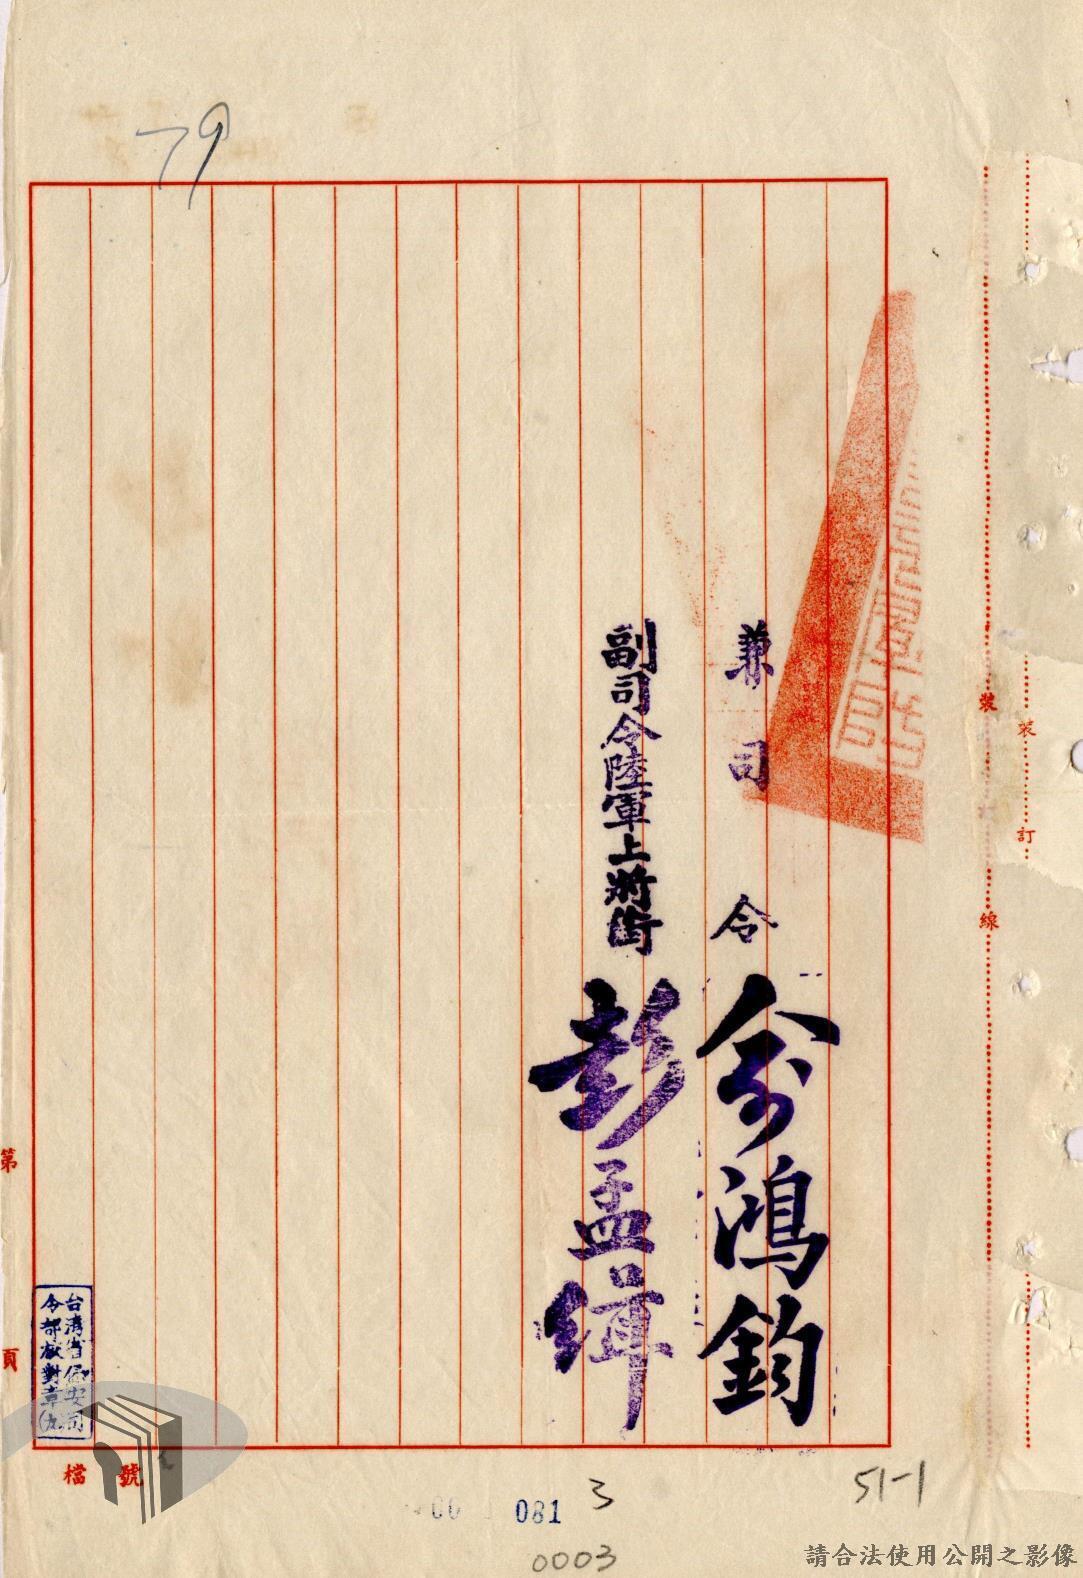 79
兼司令俞鴻鈞
副司令陸軍上將銜彭孟緝
裝
線
裝
訂
第
頁
台灣省保安司
令部校對章(九)
檔
號
081
3
51-1
0003
請合法使用公開之影像